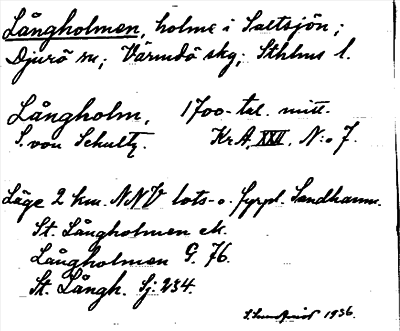 Långholmen, holme i Saltsjön;
Djurö sn; Värmdö skg; Sthlms l.
Långholm, 1700-tal. mitt.
S. von Schultz. Kr. A. XXII. N:o 7.
Läge 2 km. NNV lots- o. fyrpl. Sandhamn.
St. Långholmen ek.
Långholmen G. 76.
St. Långh. Sj: 234.
1936.